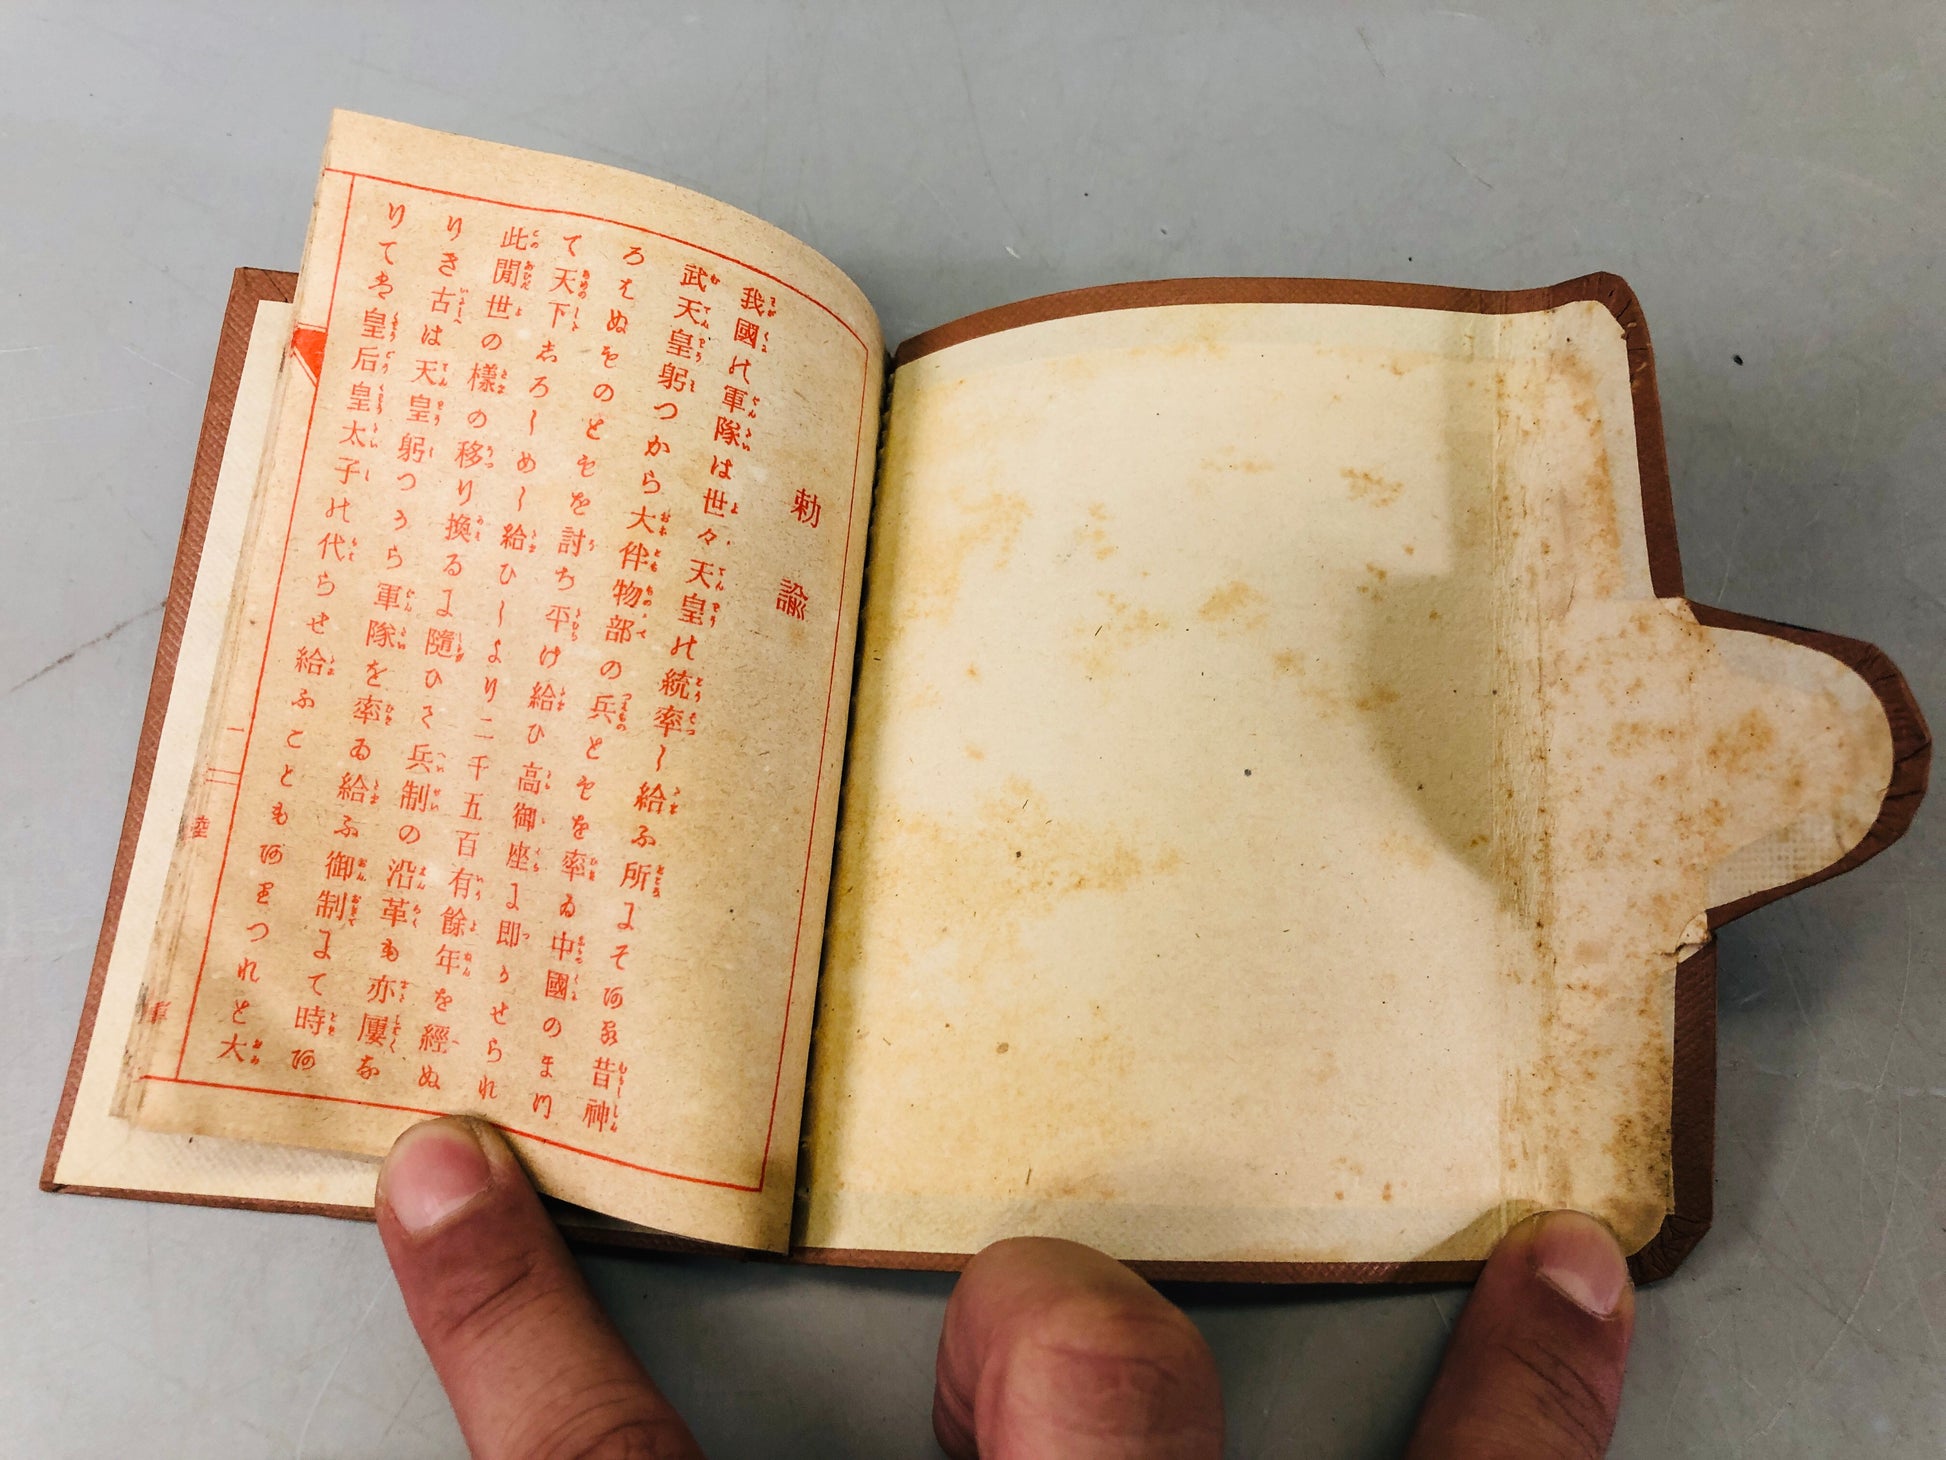 勅諭
我國の軍隊は世々天皇の統率し給ふ所にそある昔神
武天皇躬つから大伴物部の兵ともを率ゐ中國のまつ
ろはぬものともを討ち平け給ひ高御座に即かせられ
て天下しろしめし給ひしより二千五百有餘年を經ぬ
此間世の樣の移り換るに隨ひて兵制の沿革も亦屢な
りき古は天皇躬つから軍隊を率ゐ給ふ御制にて時あ
りては皇后皇太子の代らせ給ふこともありつれと大
一
陸軍